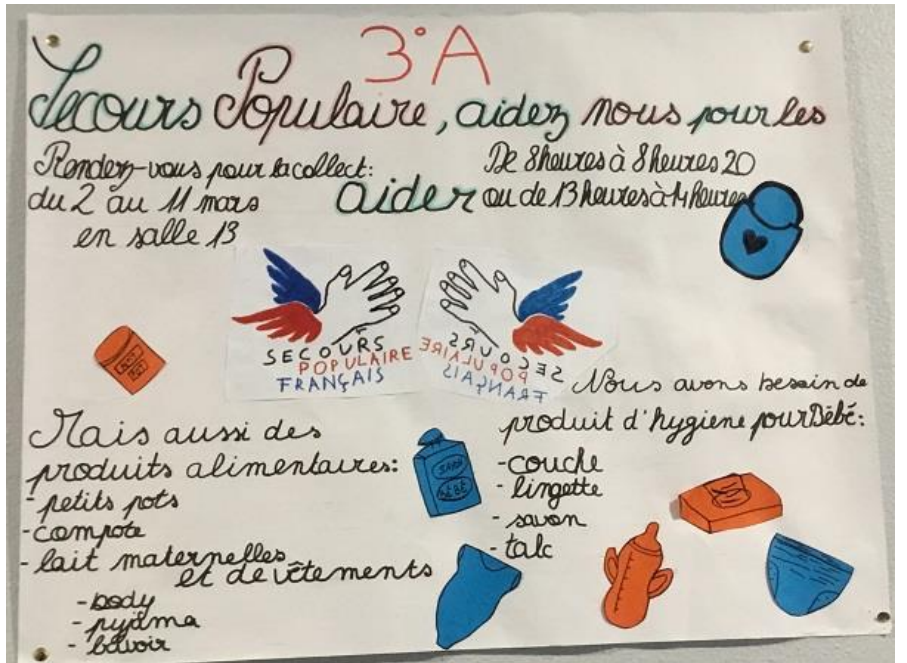 3°A
Secours Populaire, aidez nous pour les
aider
Rendez-vous pour la collect:
du 2 au 11 mars
en salle 13
De 8heures à 8heures 20
ou de 13heures à 14heures
SECOURS
POPULAIRE
FRANÇAIS
SECOURS
POPULAIRE
FRANÇAIS
Nous avons besoin de
produit d'hygiene pour Bébé:
-couche
-lingette
-savon
-talc
Mais aussi des
produits alimentaires:
-petits pots
-compote
-lait maternelles
et de vêtements
-body
-pyjama
-bavoir
SAVON
BÉBÉ